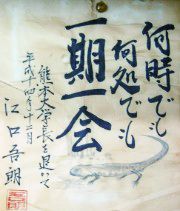 何時でも
何処でも
一期一会
熊本大学長を退いて
平成十四年十二月
江口吾朗